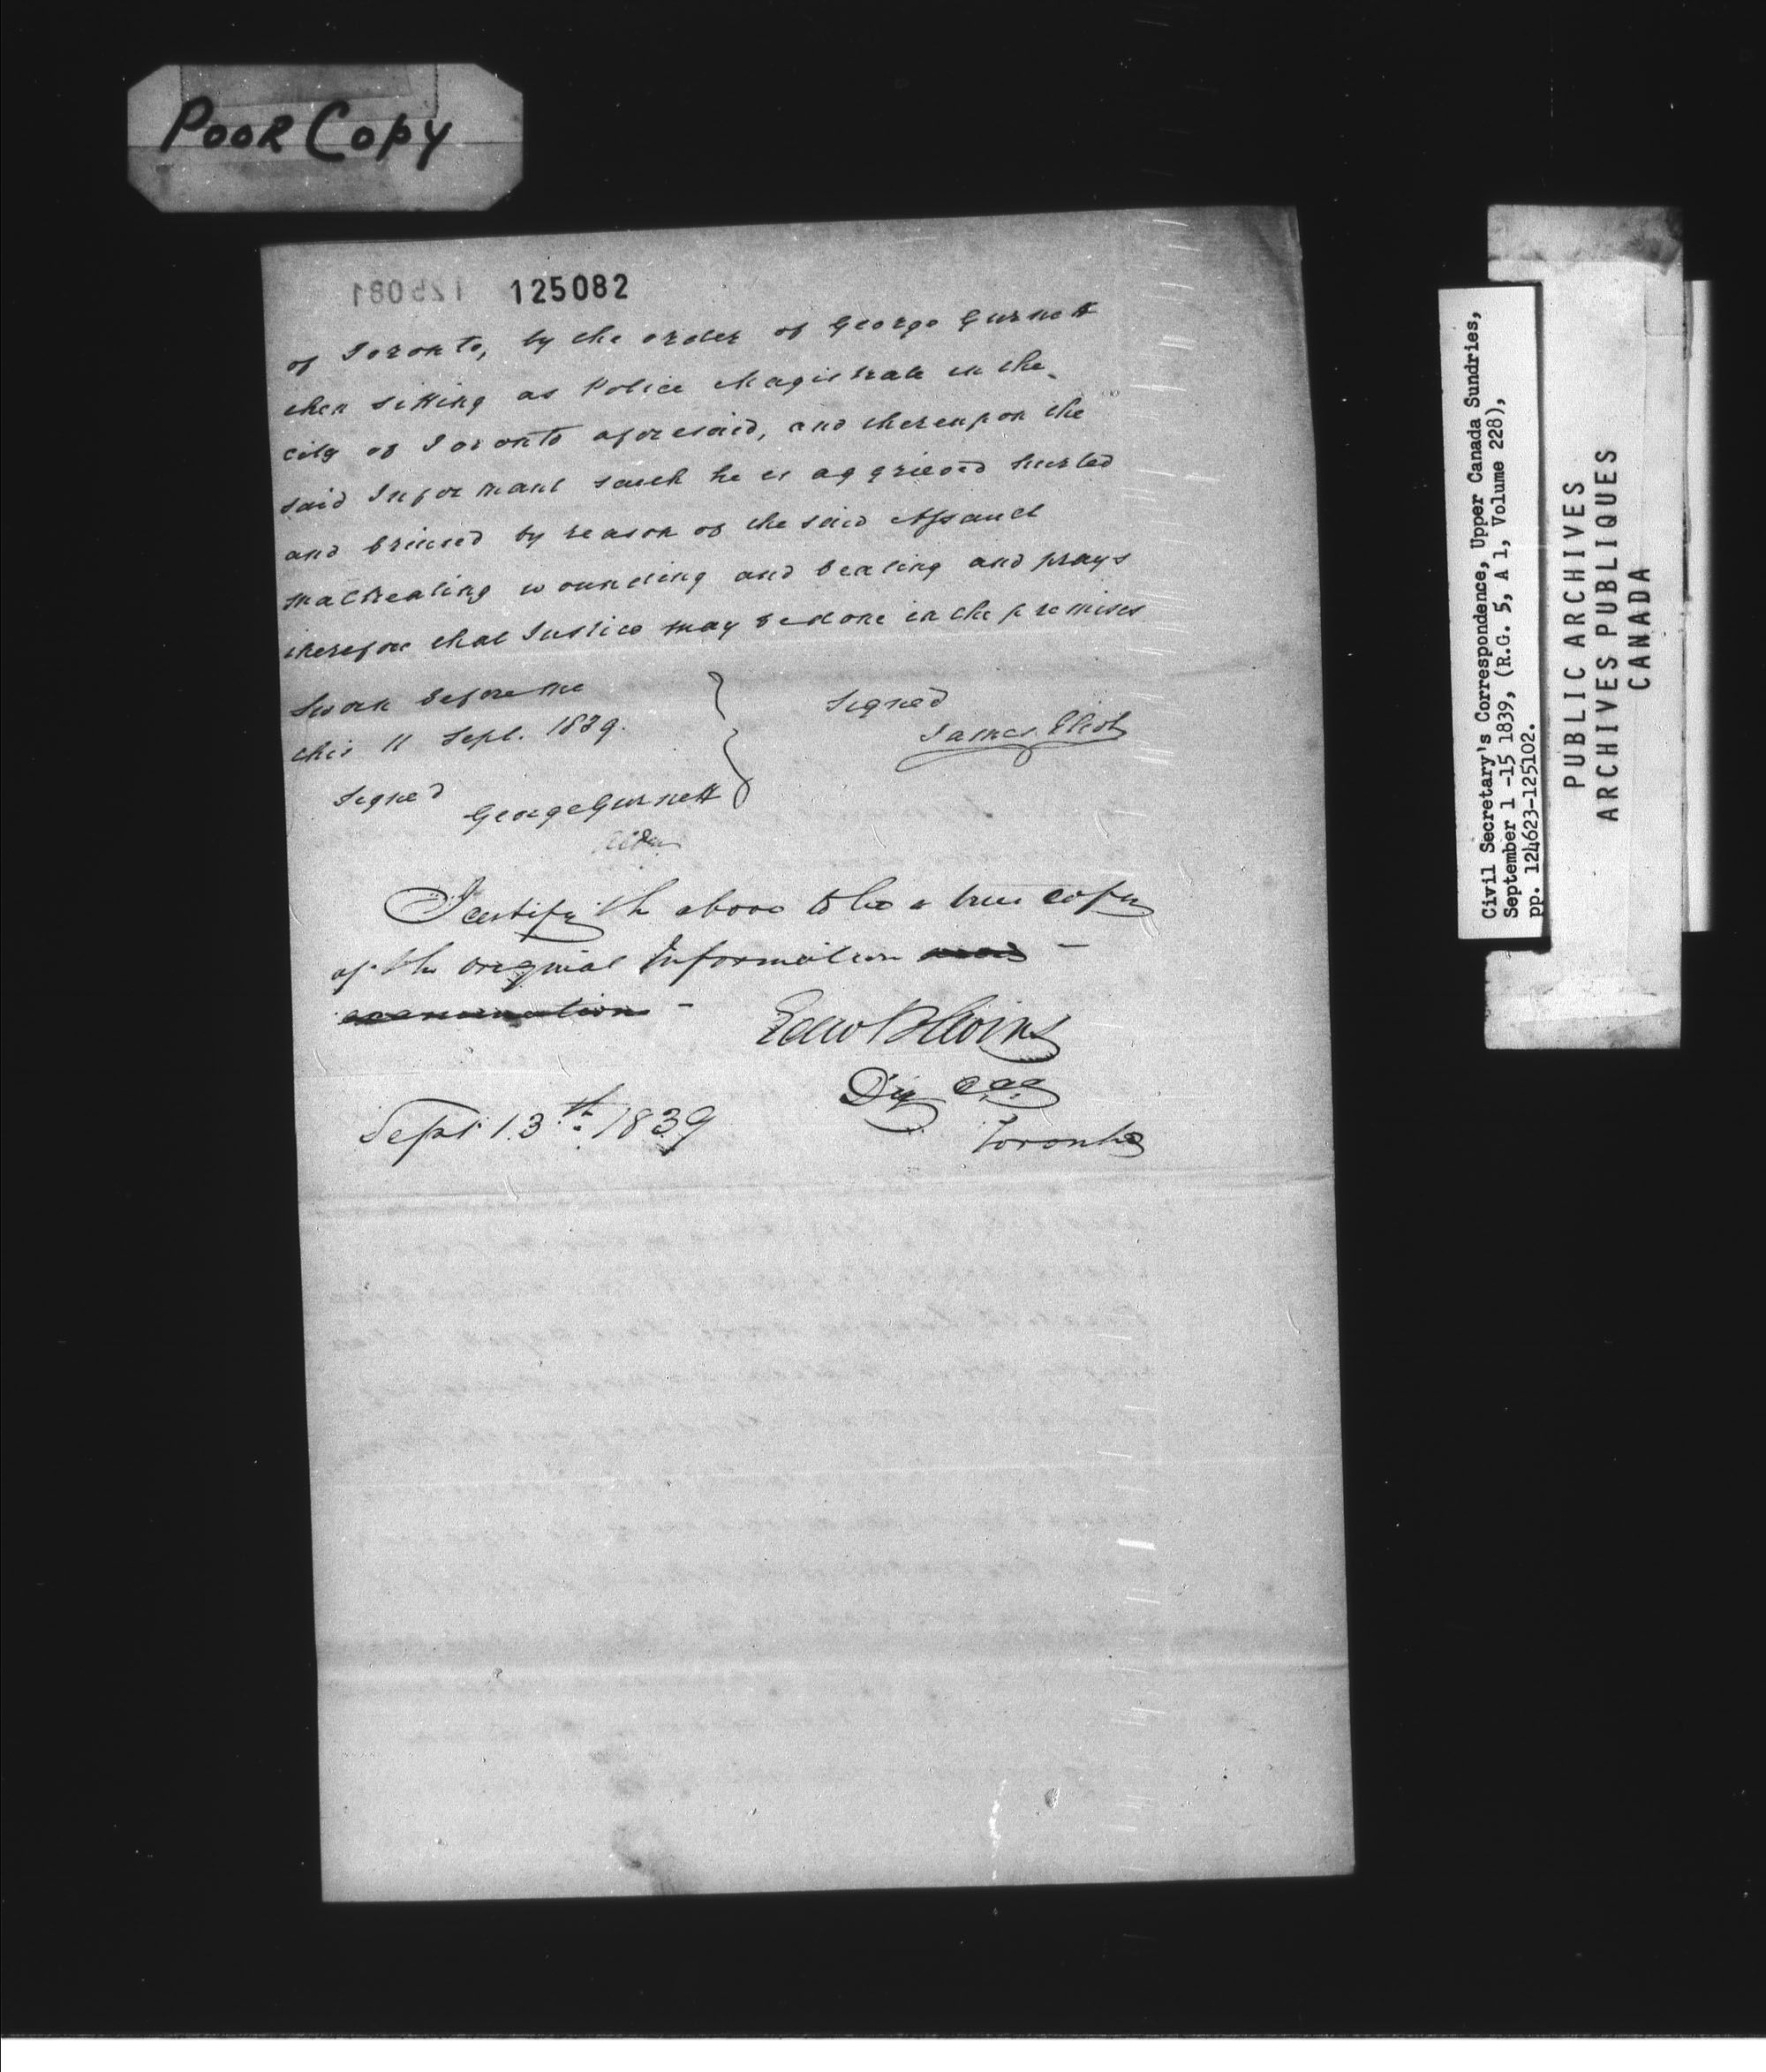 Poor Copy
125081 125082
of Toronto, by the order of George Gurnett
then sitting as Police Magistrate in the
city of Toronto aforesaid, and thereupon the
said Informant saith he is aggrieved hurted
and bruised by reason of the said Assault
maltreating wounding and beating and prays
therefore that Justice may be done in the premises
Sworn before me
this 11 Sept. 1839.
Signed
George Gurnett
Signed
James Eliot
I certify the above to be a true copy
of the original Information and -
examination -
Toronto
Sept 13th 1839
Civil Secretary's Correspondence, Upper Canada Sundries,
September 1 -15 1839, (R.G. 5, A 1, Volume 228),
pp. 124623-125102.
PUBLIC ARCHIVES
ARCHIVES PUBLIQUES
CANADA